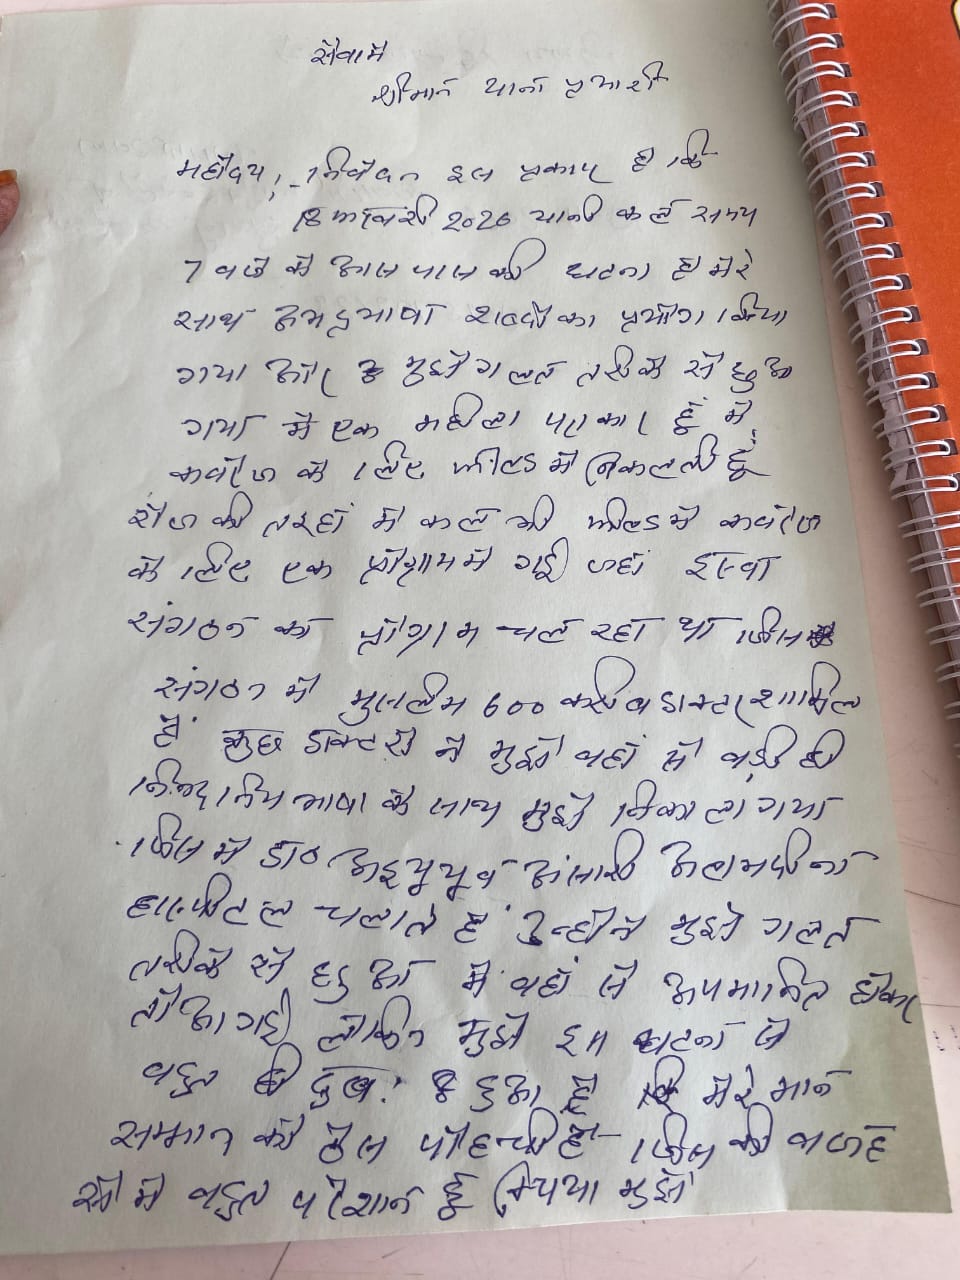 सेवामे
श्रीमान थाना प्रभारी
महोदय, निवेदन इस प्रकार है कि
फरवरी 2026 यानी कल समय
7 बजे के आस पास की घटना है मेरे
साथ अभद्रभाषा शब्दो का प्रयोग किया
गया और मुझे गलत तरीके से छुआ
गया मे एक महिला पत्रकार हूँ मे
कवरेज के लिए फील्ड मे निकलती हूँ
रोज की तरहां मे कल भी फील्ड मे कवरेज
के लिए एक प्रोग्राम मे गई जहां
संगठन का प्रोग्राम चल रहा था जिस
संगठन मे मुसलीम 600 करीब डाक्टर शामिल
है कुछ डाक्टरो ने मुझे वहां से बड़ी ही
निन्दनिय भाषा के साथ मुझे निकाला गया
जिस मे डा० अंसारी
हास्पीटल चलाते है उन्होने मुझे गलत
तरीके से छुआ मे वहां से अपमानित होकर
तो आ गई लेकिन मुझे इस घटना से
बहुत ही दुख: हुआ है कि मेरे मान
सम्मान को ठेस पोहन्ची है जिस की वजह
से मे बहुत परेशान हूँ मुझे